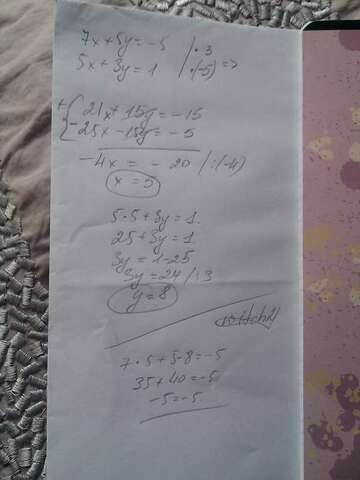 7x+5y=-5 | ·3
5x+3y=1 | ·(-5) =>
+ { 21x+15y=-15
-25x-15y=-5
-4x = -20 /:(-4)
x=5
5·5+3y=1
25+3y=1
3y=1-25
3y=24 /:3
y=8
7·5+5·8=-5
35+40=-5
-5=-5